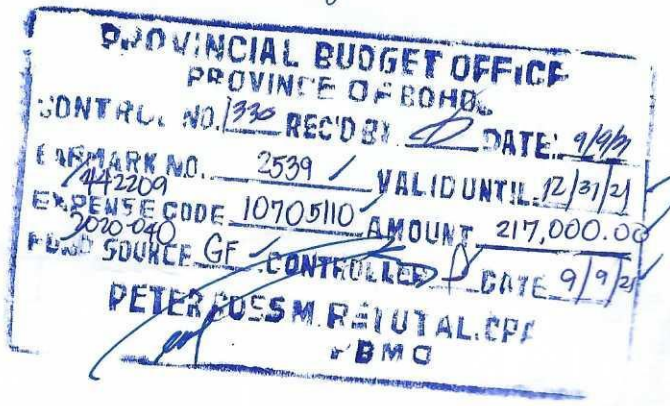 PROVINCIAL BUDGET OFFICE
PROVINCE OF BOHOL
CONTROL NO. 1330 REC'D BY DATE: 9/9/21
EARMARK NO. 2539 ✓ VALID UNTIL: 12/31/21
442209
EXPENSE CODE 10705110 ✓ AMOUNT 217,000.00
2020-040
FUND SOURCE GF ✓ CONTROLLED DATE 9/9/21
PETER ROSS M. RETUTAL, CPA
PBMO